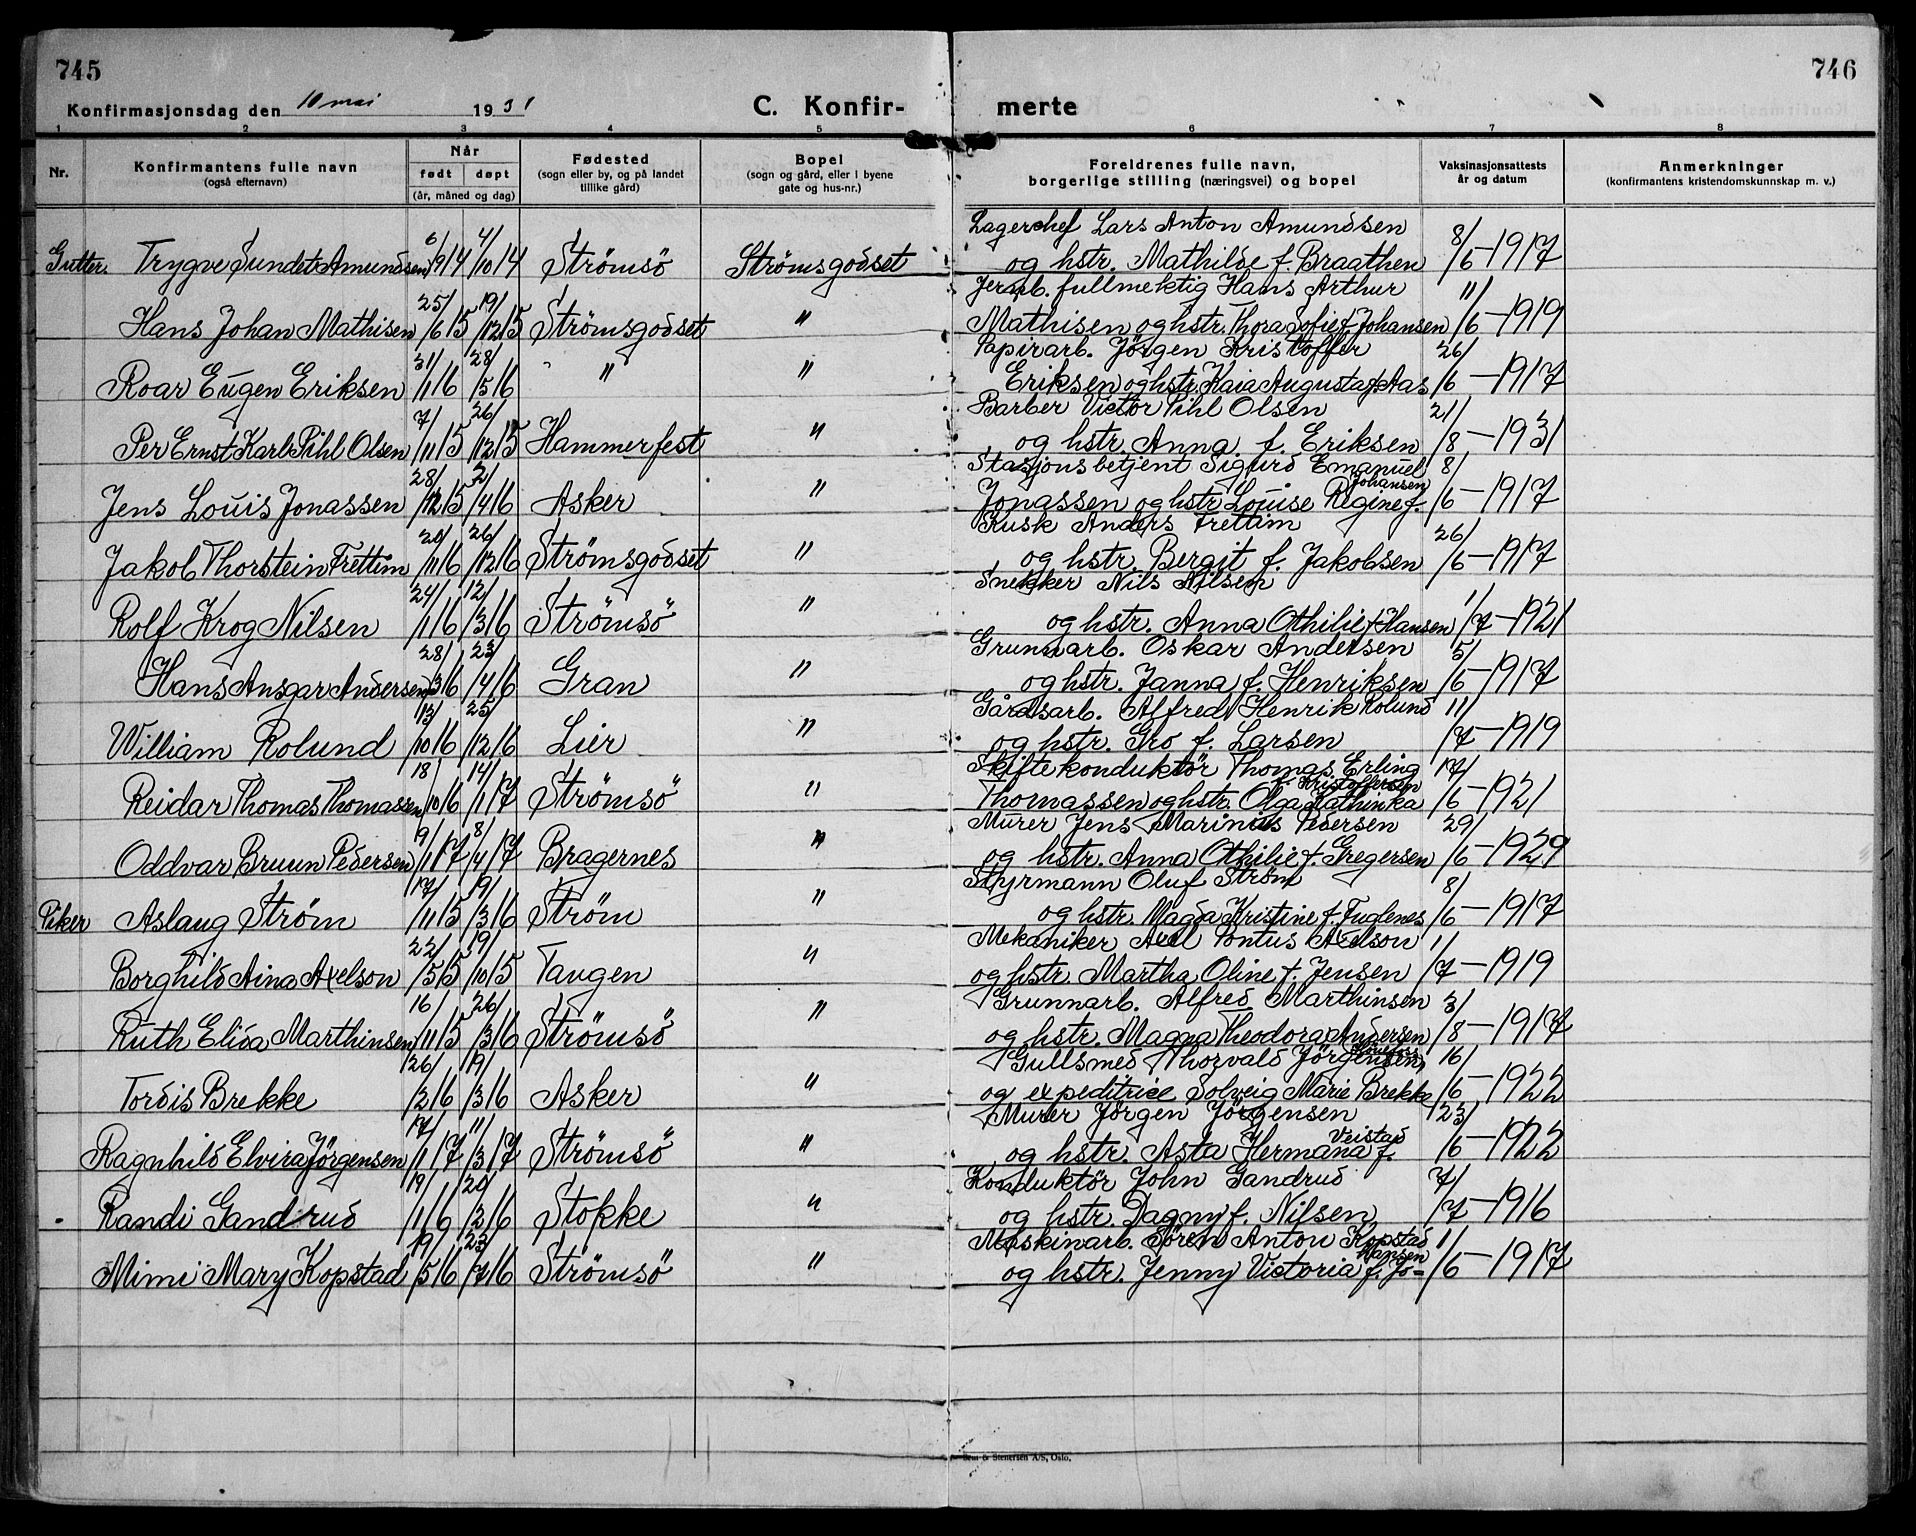 745
746
Konfirmasjonsdag den 10 mai 1931
C. Konfir- merte
1 2 3 4 5 6 7 8
Nr.
Konfirmantens fulle navn
(også efternavn)
Når
født døpt
(år, måned og dag)
Fødested
(sogn eller by, og på landet
tillike gård)
Bopel
(sogn og gård, eller i byene
gate og hus-nr.)
Foreldrenes fulle navn,
borgerlige stilling (næringsvei) og bopel
Vaksinasjonsattests
år og datum
Anmerkninger
(konfirmantens kristendomskunnskap m. v.)
Lagerchef Lars Anton Amundsen
Gutter. Trygve Sundet Amundsen 6/9 14 4/10 14 Strömsö Strömsgodset og hstr. Mathilde f. Braathen 8/6-1917
Jernb. fullmektig Hans Arthur
Hans Johan Mathisen 25/6 15 19/12 15 Strömsgodset " Mathisen og hstr. Thora Sofie f. Johansen 11/6-1919
Papirarb. Jörgen Kristoffer
Roar Eugen Eriksen 31/1 16 28/5 16 " " Eriksen og hstr. Kaia Augusta f. Aas 26/6-1917
Barber Victor Pihl Olsen
Per Ernst Karl Pihl Olsen 7/11 15 26/12 15 Hammerfest " og hstr. Anna f. Eriksen 21/8-1931
Stasjonsbetjent Sigurd Emanuel
Johansen
Jens Louis Jonassen 28/12 15 2/4 16 Asker " Jonassen og hstr. Louise Regine f. 8/6-1917
Kusk Anders Frettim
Jakob Thorstein Frettim 20/11 16 26/12 16 Strömsgodset " og hstr. Bergit f. Jakobsen 26/6-1917
Snekker Nils Nilsen
Rolf Krog Nilsen 24/1 16 12/3 16 Strömsö " og hstr. Anna Othilie f. Hansen 1/7-1921
Grunnarb. Oskar Andersen
Hans Ansgar Andersen 28/3 16 23/4 16 Gran " og hstr. Janna f. Henriksen 5/6-1917
Gårdsarb. Alfred Henrik Rolund
William Rolund 13/10 16 25/12 16 Lier " og hstr. Gro f. Larsen 11/7-1919
Skiftekonduktör Thomas Erling
Kristoffersen
Reidar Thomas Thomassen 18/10 16 14/1 17 Strömsö " Thomassen og hstr. Olga Kathinka 17/6-1921
Murer Jens Marinus Pedersen
Oddvar Bruun Pedersen 9/1 17 8/4 17 Bragernes " og hstr. Anna Othilie f. Gregersen 29/6-1929
Styrmann Oluf Ström
Piker Aslaug Ström 17/11 15 19/3 16 Ström " og hstr. Magda Kristine f. Fuglenes 8/6-1917
Mekaniker Axel Pontus Axelson
Borghild Aina Axelson 22/5 15 19/10 15 Tangen " og hstr. Martha Oline f. Jensen 1/7-1919
Grunnarb. Alfred Marthinsen
Ruth Elida Marthinsen 16/11 15 26/3 16 Strömsö " og hstr. Magna Theodora f. Andersen 3/8-1917
Gullsmed Thorvald Jörgensen,
Tordis Brekke 26/2 16 19/3 16 Asker " og expeditrice Solveig Marie Brekke 16/6-1922
Murer Jörgen Jörgensen
Veistad
Ragnhild Elvira Jörgensen 17/1 17 11/3 17 Strömsö " og hstr. Asta Hermana f. 23/6-1922
Konduktör John Gandrud
Randi Gandrud 19/1 16 20/2 16 Stokke " og hstr. Dagny f. Nilsen 7/7-1916
Maskinarb. Sören Anton Kopstad
hansen
Mimi Mary Kopstad 19/5 16 23/7 16 Strömsö " og hstr. Jenny Victoria f. Jo- 1/6-1917
& Stenersen A/S, Oslo.